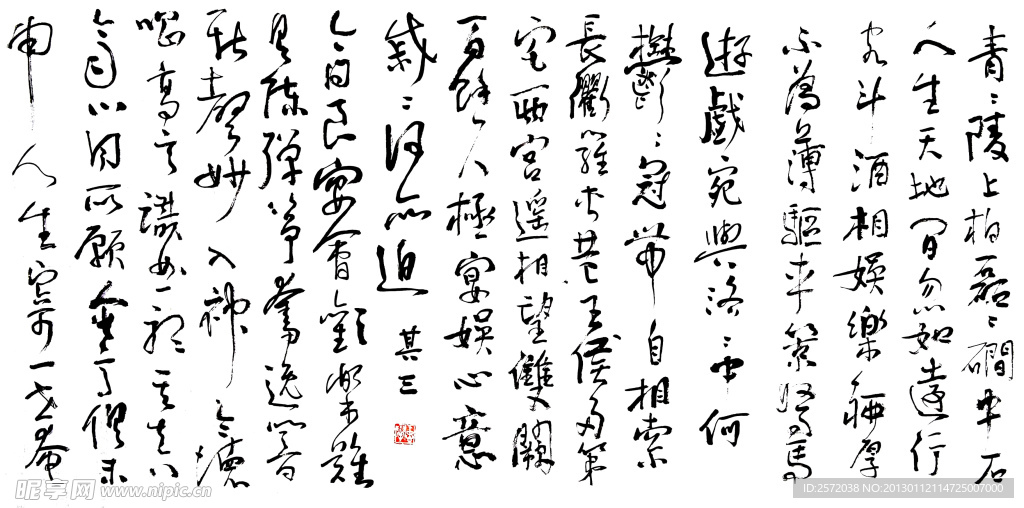 青〻陵上柏磊〻磵中石
人生天地間忽如遠行
客斗酒相娛樂聊厚
不為薄驅車策駑馬
遊戲宛與洛〻中何
欝〻冠帶自相索
長衢羅夾巷王侯多第
宅兩宮遙相望雙闕
百餘尺極宴娛心意
戚〻何所迫 其三
今日良宴會歡樂難
具陳彈箏奮逸響
新聲妙入神令德
唱高言識曲聽其真
齊心同所願含意俱未
申人生寄一世奄
昵享网 www.nipic.cn
ID:2572038 NO:20130112114725007000